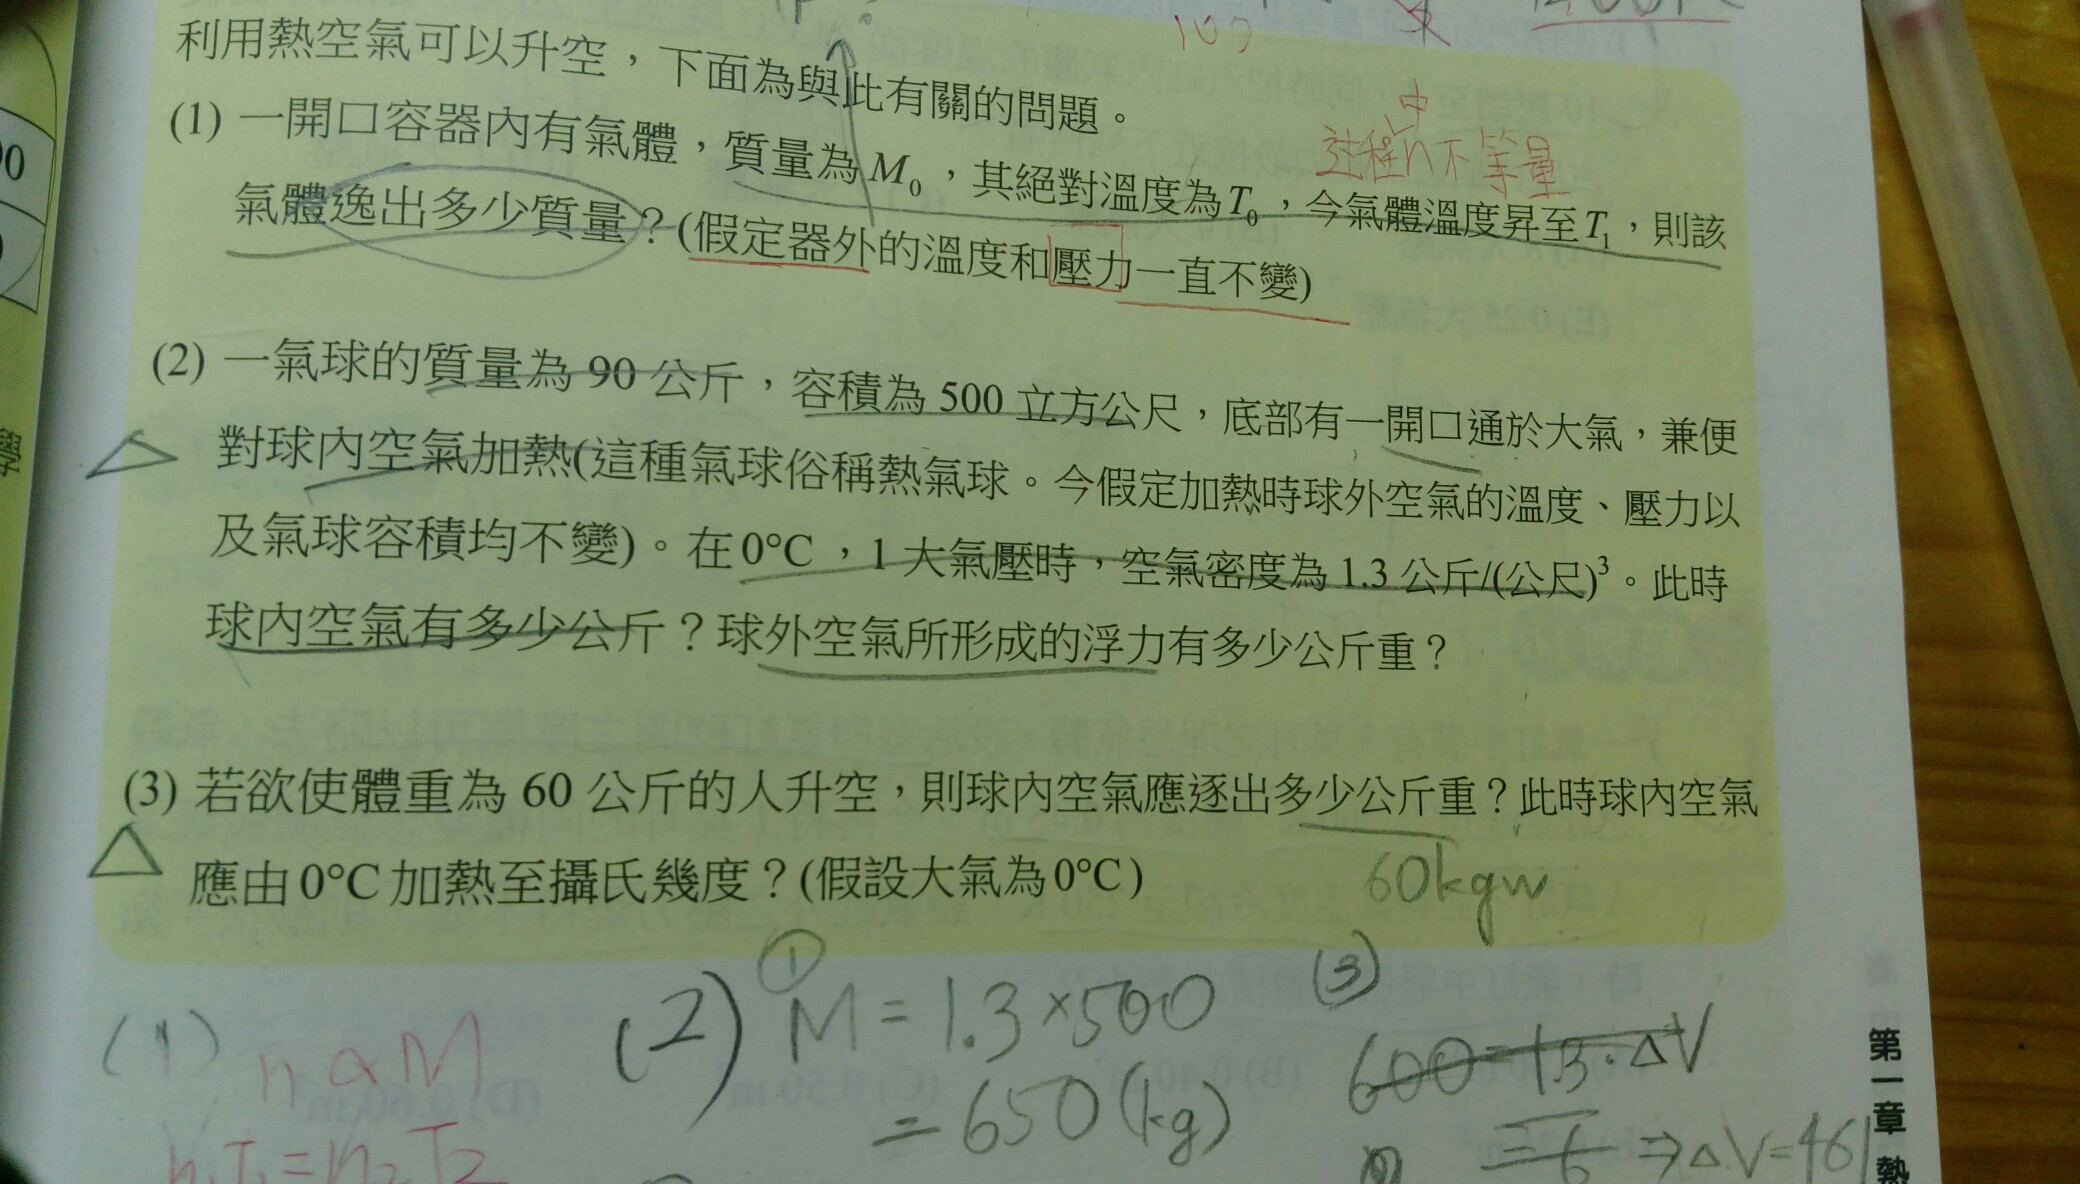 103
利用熱空氣可以升空，下面為與此有關的問題。
中
过程n不等量
(1) 一開口容器內有氣體，質量為M₀，其絕對溫度為T₀，今氣體溫度昇至T₁，則該
氣體逸出多少質量？(假定器外的溫度和壓力一直不變)
(2) 一氣球的質量為 90 公斤，容積為 500 立方公尺，底部有一開口通於大氣，兼便
對球內空氣加熱(這種氣球俗稱熱氣球。今假定加熱時球外空氣的溫度、壓力以
及氣球容積均不變)。在0°C，1 大氣壓時，空氣密度為 1.3 公斤/(公尺)³。此時
球內空氣有多少公斤？球外空氣所形成的浮力有多少公斤重？
(3) 若欲使體重為 60 公斤的人升空，則球內空氣應逐出多少公斤重？此時球內空氣
應由0°C加熱至攝氏幾度？(假設大氣為0°C)
60kgw
(1) n α M
n₁T₁=n₂T₂
(2) ① M = 1.3×500
= 650(kg)
(3)
600=1.3·ΔV
⇒ΔV=461
第一章 熱
學